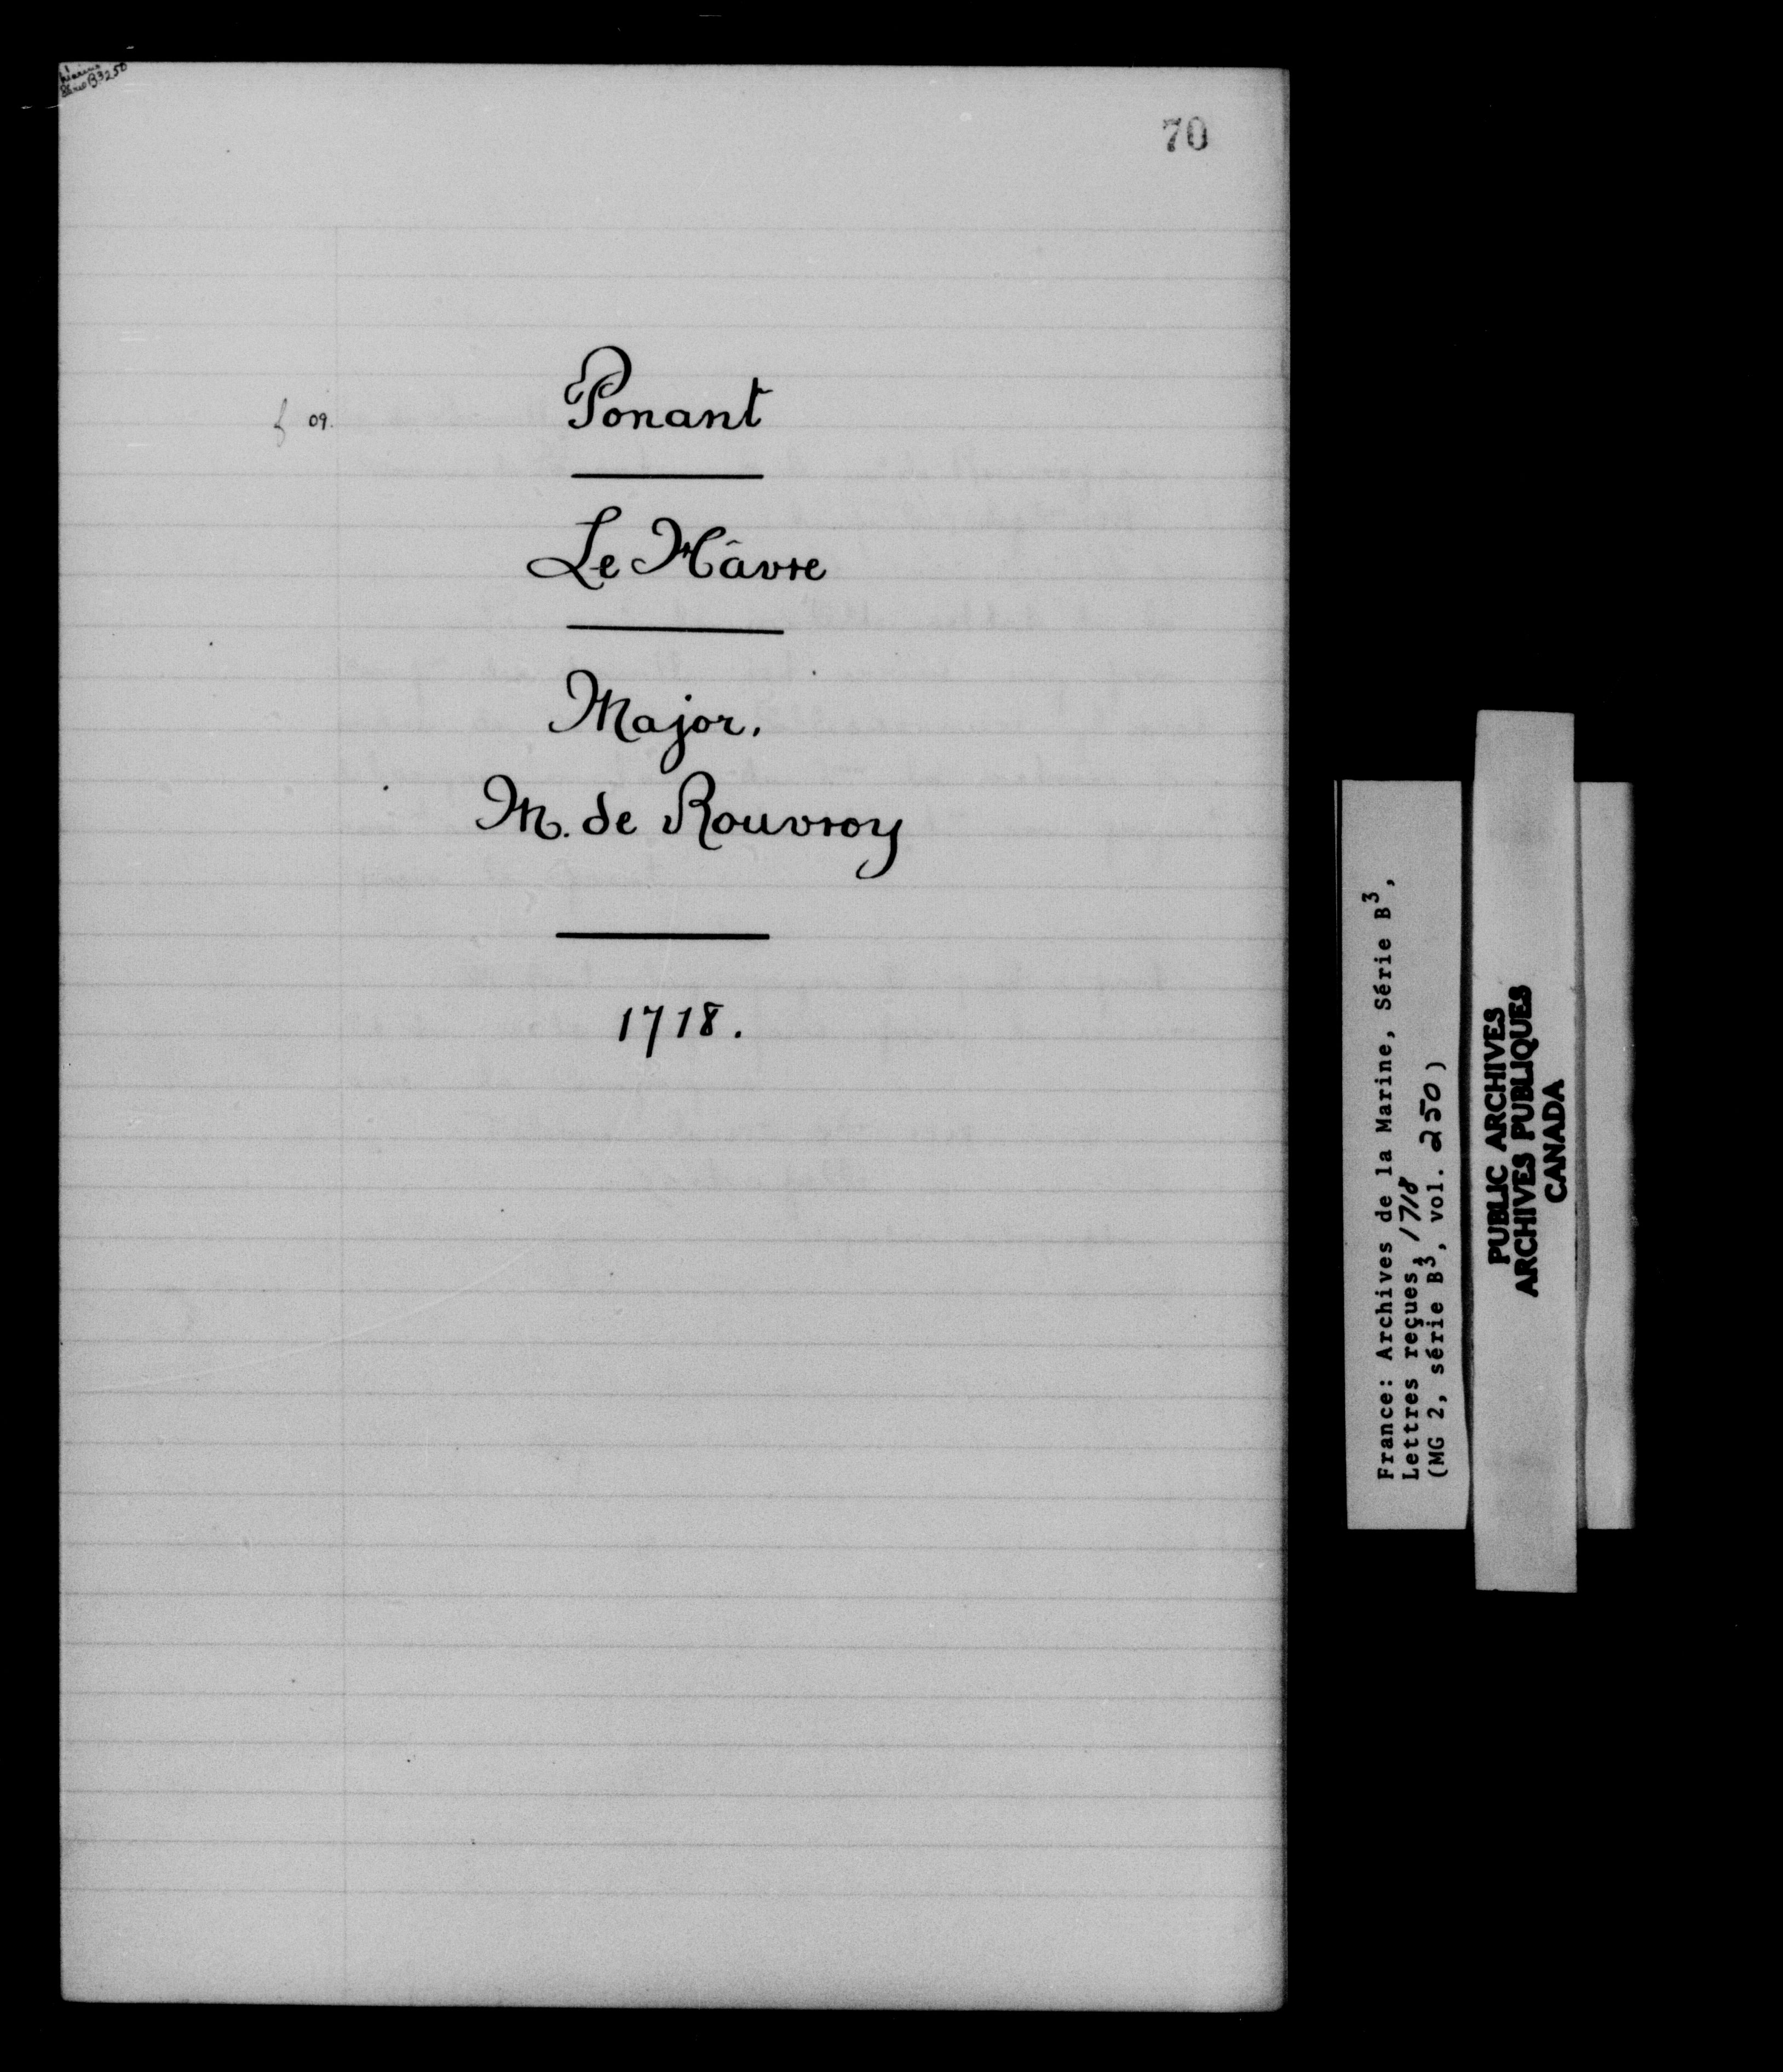 Marine
Série B3 250
70
f 09.
Ponant
Le Hâvre
Major.
M. de Rouvroy
1718.
France: Archives de la Marine, Série B3,
Lettres reçues, 1718
(MG 2, série B3, vol. 250)
PUBLIC ARCHIVES
ARCHIVES PUBLIQUES
CANADA